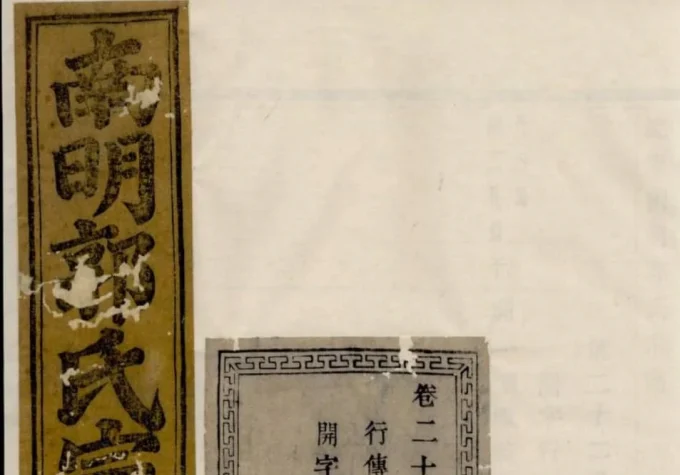 南明郭氏宗
卷二十
行傳
開字